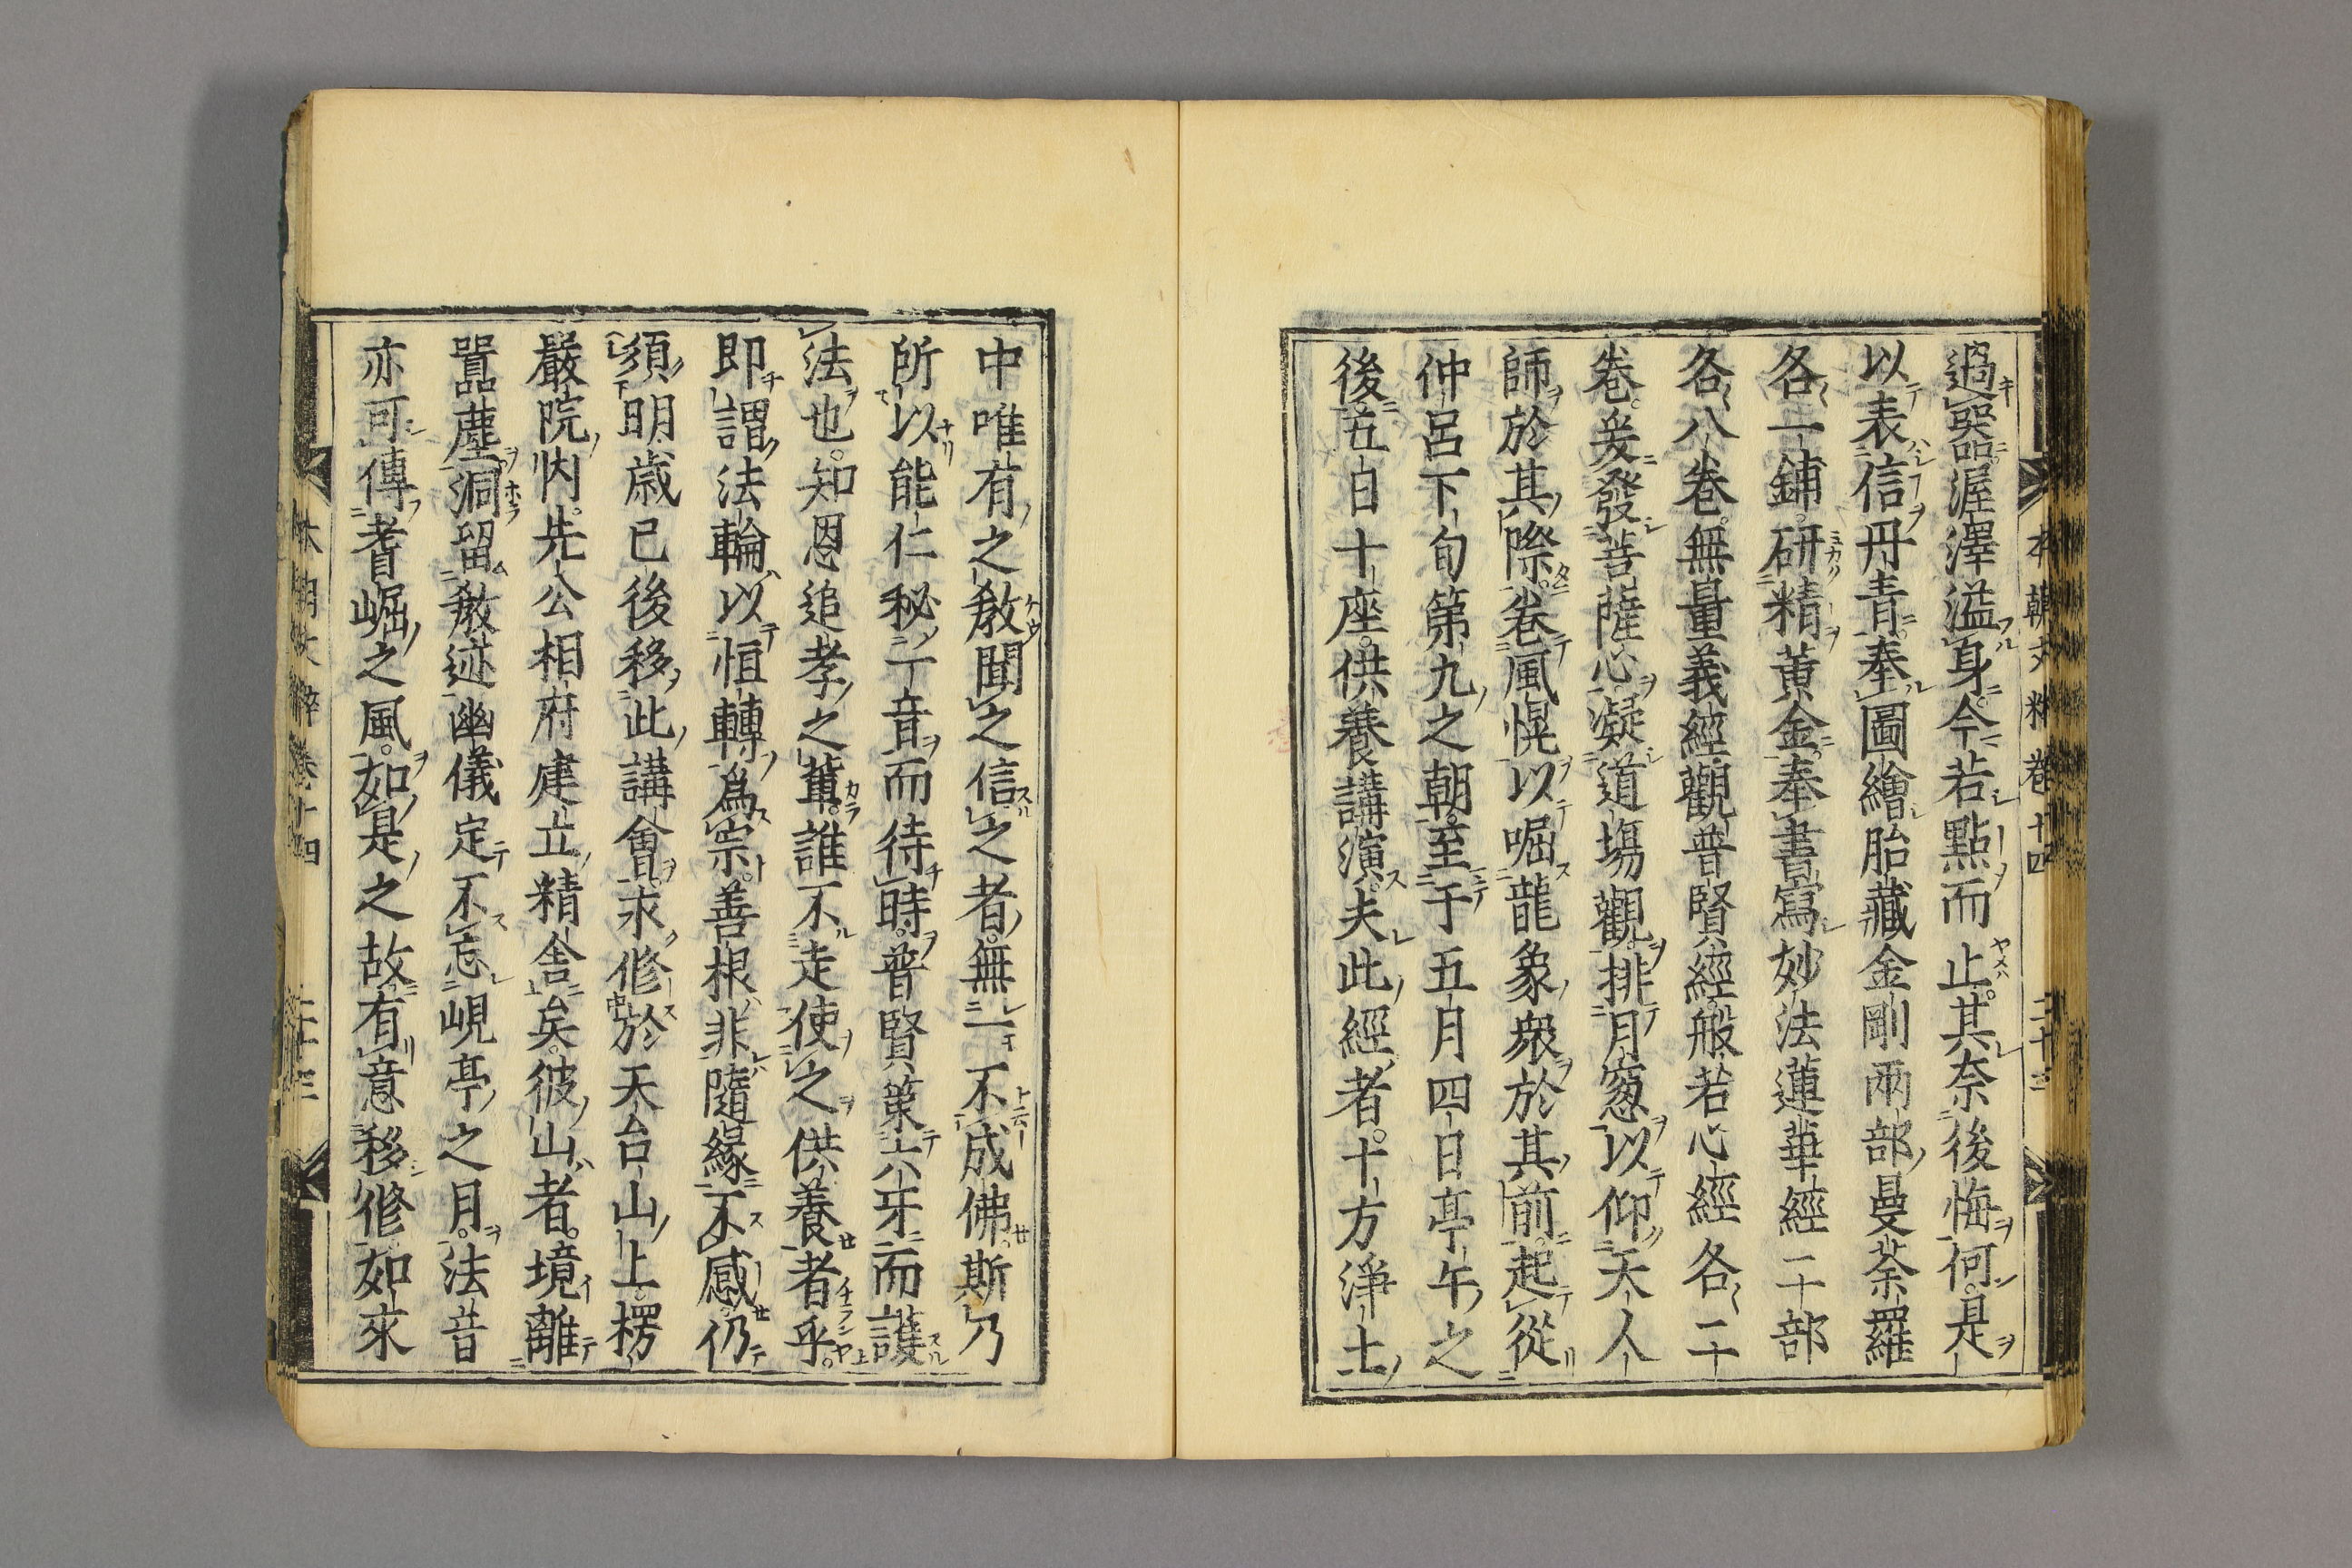 本朝文粹卷十四 二十三
過器。渥澤溢身。今若點而止。其奈後悔何。是
以表信丹青。奉圖繪胎藏金剛兩部曼荼羅
各一鋪。研精黄金。奉書寫妙法蓮華經二十部
各八卷。無量義經觀普賢經般若心經各二十
卷。爰發菩薩心。凝道場觀。排月窓以仰天人
師於其際。卷風幌以啒龍象衆於其前。起從
仲呂下旬第九之朝。至于五月四日亭午之
後。五日十座。供養講演。夫此經者。十方淨土
中唯有之教。聞之信之者。無一不成佛。斯乃
所以能仁秘一音而待時。普賢策六牙而護
法也。知恩追孝之輩。誰不走使之供養者乎。
即謂法輪以恒轉爲宗。善根非隨緣不感。仍
須明歳已後移此講會。永修於天台山上楞
嚴院内。先公相府建立精舎矣。彼山者。境離
囂塵。洞留教迹。幽儀定不忘峴亭之月。法音
亦可傳耆崛之風。如是之故。有意移修。如來
本朝文粹卷十四 二十三